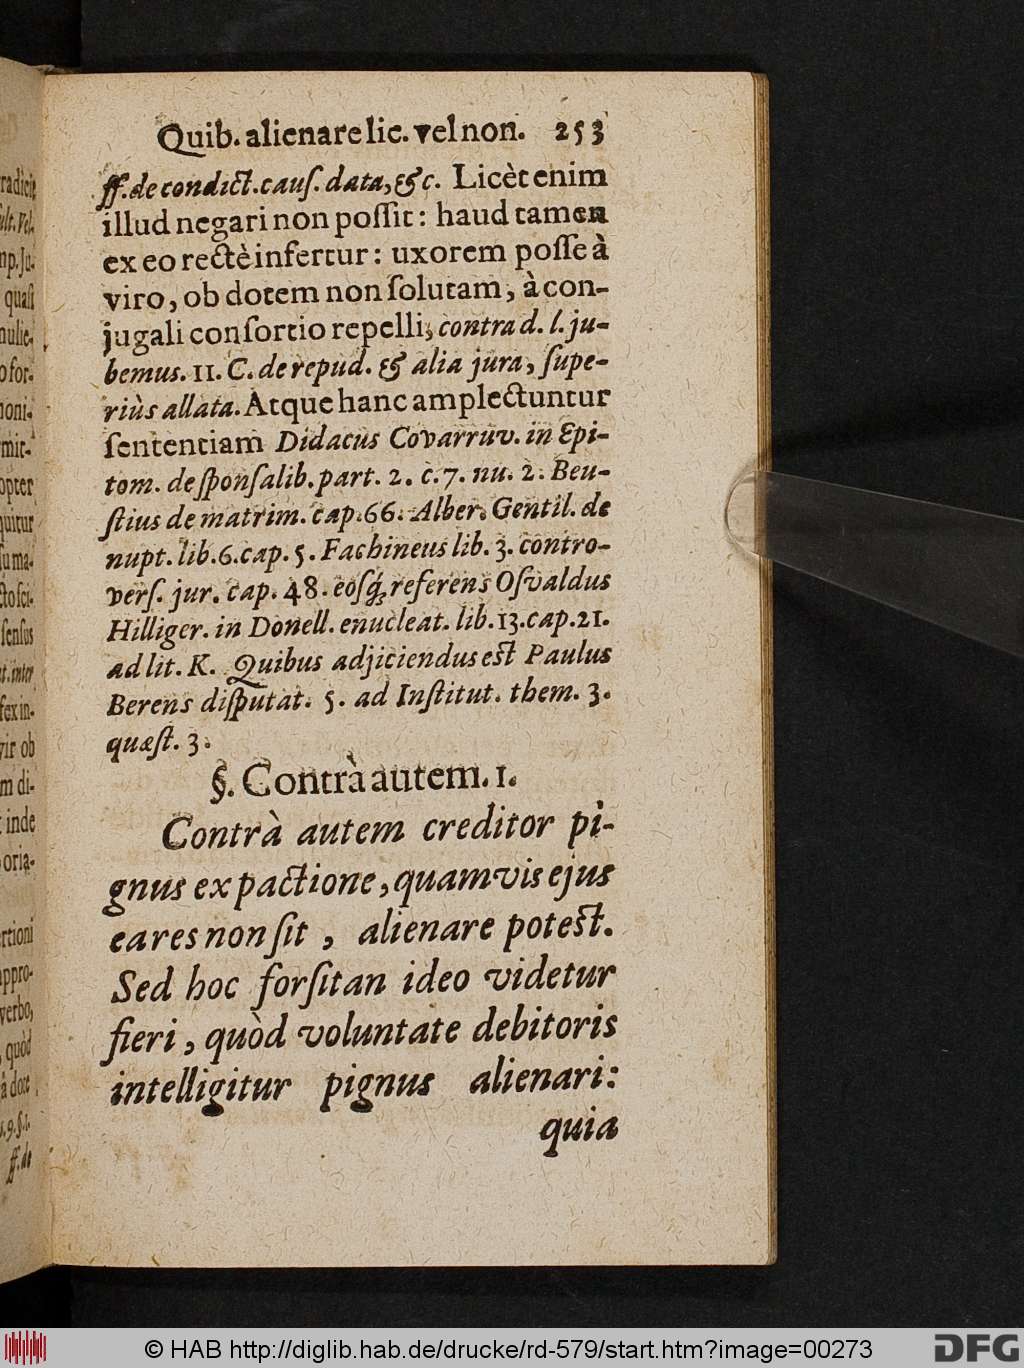 Quib. alienare lic. vel non. 253
ff. de condict. cauſ. data, &c. Licèt enim
illud negari non poſſit: haud tamen
ex eo rectè infertur: uxorem poſſe à
viro, ob dotem non ſolutam, à con-
jugali conſortio repelli, contra d. l. ju-
bemus. 11. C. de repud. & alia jura, ſupe-
riùs allata. Atque hanc amplectuntur
ſententiam Didacus Covarruv. in Epi-
tom. de ſponſalib. part. 2. c. 7. nu. 2. Beu-
ſtius de matrim. cap. 66. Alber. Gentil. de
nupt. lib. 6. cap. 5. Fachineus lib. 3. contro-
verſ. jur. cap. 48. eoſq́; referens Oſvaldus
Hilliger. in Donell. enucleat. lib. 13. cap. 21.
ad lit. K. Quibus adjiciendus est Paulus
Berens diſputat. 5. ad Inſtitut. them. 3.
quæſt. 3.
§. Contrà autem. 1.
Contrà autem creditor pi-
gnus ex pactione, quamvis ejus
ea res non ſit, alienare potest.
Sed hoc forſitan ideo videtur
fieri, quòd voluntate debitoris
intelligitur pignus alienari:
quia
radicis
ult. Vel.
mp. Ju-
quaſi
mulie-
o for-
moni-
mit-
opter
quitur
ſu ma-
cto ſci-
ſenſus
t. inter
fex in-
vir ob
m di-
inde
oria-
rtioni
appro-
verbo,
quòd
à dote
9. §. 1.
ff. de
© HAB http://diglib.hab.de/drucke/rd-579/start.htm?image=00273
DFG